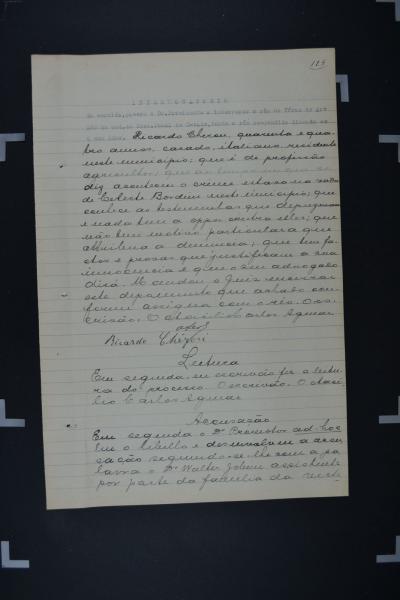 123
INTERROGATORIO
Em seguida, passou o Dr. Presidente a interrogar o réo na fórma da
Ricardo Cheron, quarenta e qua-
tro annos, casado, italiano, residente
neste municipio; que é de profissão
agricultor; que ao tempo em que se
diz aconteceu o crime estava na casa
de Celeste Bordim neste municipio; que
conhece as testemunhas que depuzeram
e nada tem a oppor contra ellas; que
não tem motivo particular a que
attribua a denuncia; que tem fa-
ctos e provas que justificam a sua
innocencia e que o seu advogado
dirá. Mandou o Juiz encerrar
este depoimento que achado con-
forme assigna com o réo. O es-
crivão. Octacilio Carlos Aymar
Ricardo
Leitura
Em seguida, eu escrivão fiz a leitu-
ra do processo. O escrivão. Octaci-
lio Carlos Aymar
Accusação
Em seguida o Dr. Promotor ad-hoc
leu o libello e desenvolveu a accu-
sação seguindo-se lhe com a pa-
lavra o Dr. Walter Jobim assistente
por parte da familia da victi-